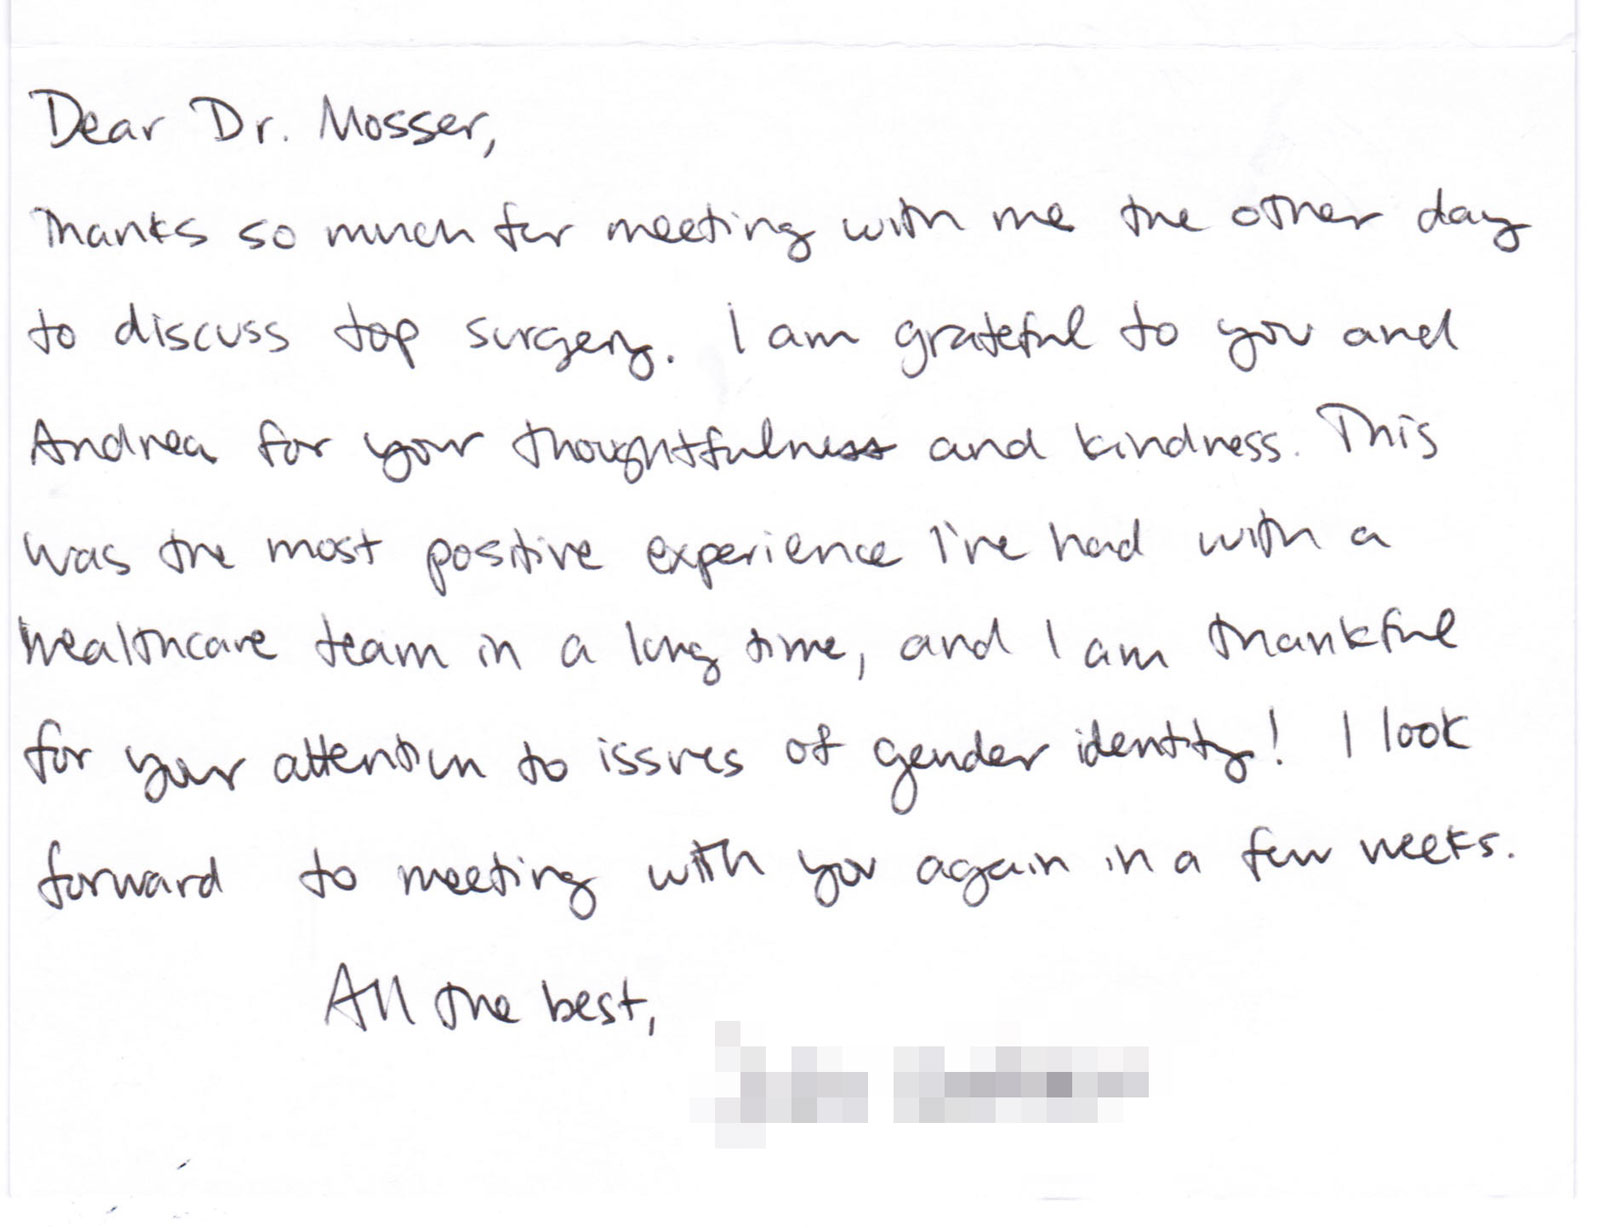 Dear Dr. Mosser,
Thanks so much for meeting with me the other day
to discuss top surgery. I am grateful to you and
Andrea for your thoughtfulness and kindness. This
was the most positive experience I've had with a
healthcare team in a long time, and I am thankful
for your attention to issues of gender identity! I look
forward to meeting with you again in a few weeks.
All the best,